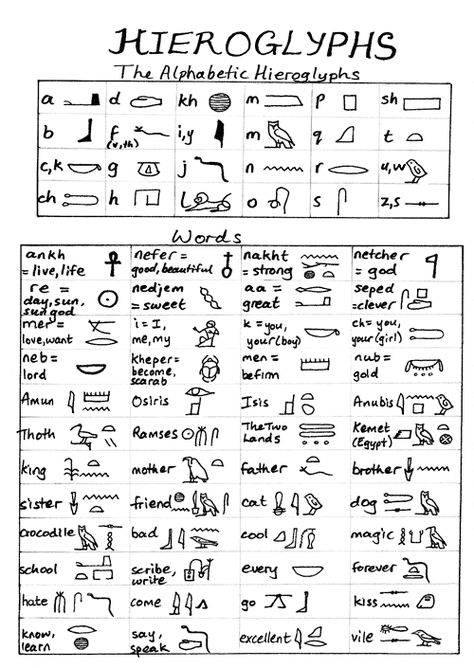 HIEROGLYPHS
The Alphabetic Hieroglyphs
a d kh m p sh
b f (v,th) i,y m q t
c,k g j n r u,w
ch h l o s z,s
Words
ankh = live, life
nefer = good, beautiful
nakht = strong
netcher = god
re = day, sun, sun god
nedjem = sweet
aa = great
seped = clever
mer = love, want
i = I, me, my
k = you, your (boy)
ch = you, your (girl)
neb = lord
kheper = become, scarab
men = be firm
nub = gold
Amun Osiris Isis Anubis
Thoth Ramses The Two Lands Kemet (Egypt)
king mother father brother
sister friend cat dog
crocodile bad cool magic
school scribe, write every forever
hate come go kiss
know, learn say, speak excellent vile